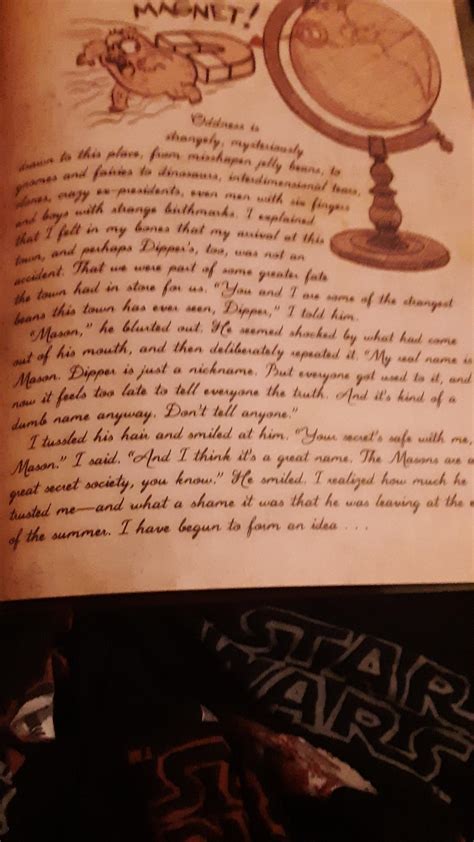 MAGNET!
Oddness is
strangely, mysteriously
drawn to this place, from misshapen jelly beans, to
gnomes and fairies to dinosaurs, interdimensional tears,
clones, crazy ex-presidents, even men with six fingers
and boys with strange birthmarks. I explained
that I felt in my bones that my arrival at this
town, and perhaps Dipper's, too, was not an
accident. That we were part of some greater fate
the town had in store for us. "You and I are some of the strangest
beans this town has ever seen, Dipper," I told him.
"Mason," he blurted out. He seemed shocked by what had come
out of his mouth, and then deliberately repeated it. "My real name is
Mason. Dipper is just a nickname. But everyone got used to it, and
now it feels too late to tell everyone the truth. And it's kind of a
dumb name anyway. Don't tell anyone."
I tussled his hair and smiled at him. "Your secret's safe with me,
Mason." I said. "And I think it's a great name. The Masons are a
great secret society, you know." He smiled. I realized how much he
trusted me—and what a shame it was that he was leaving at the
of the summer. I have begun to form an idea . . .
STAR
WARS